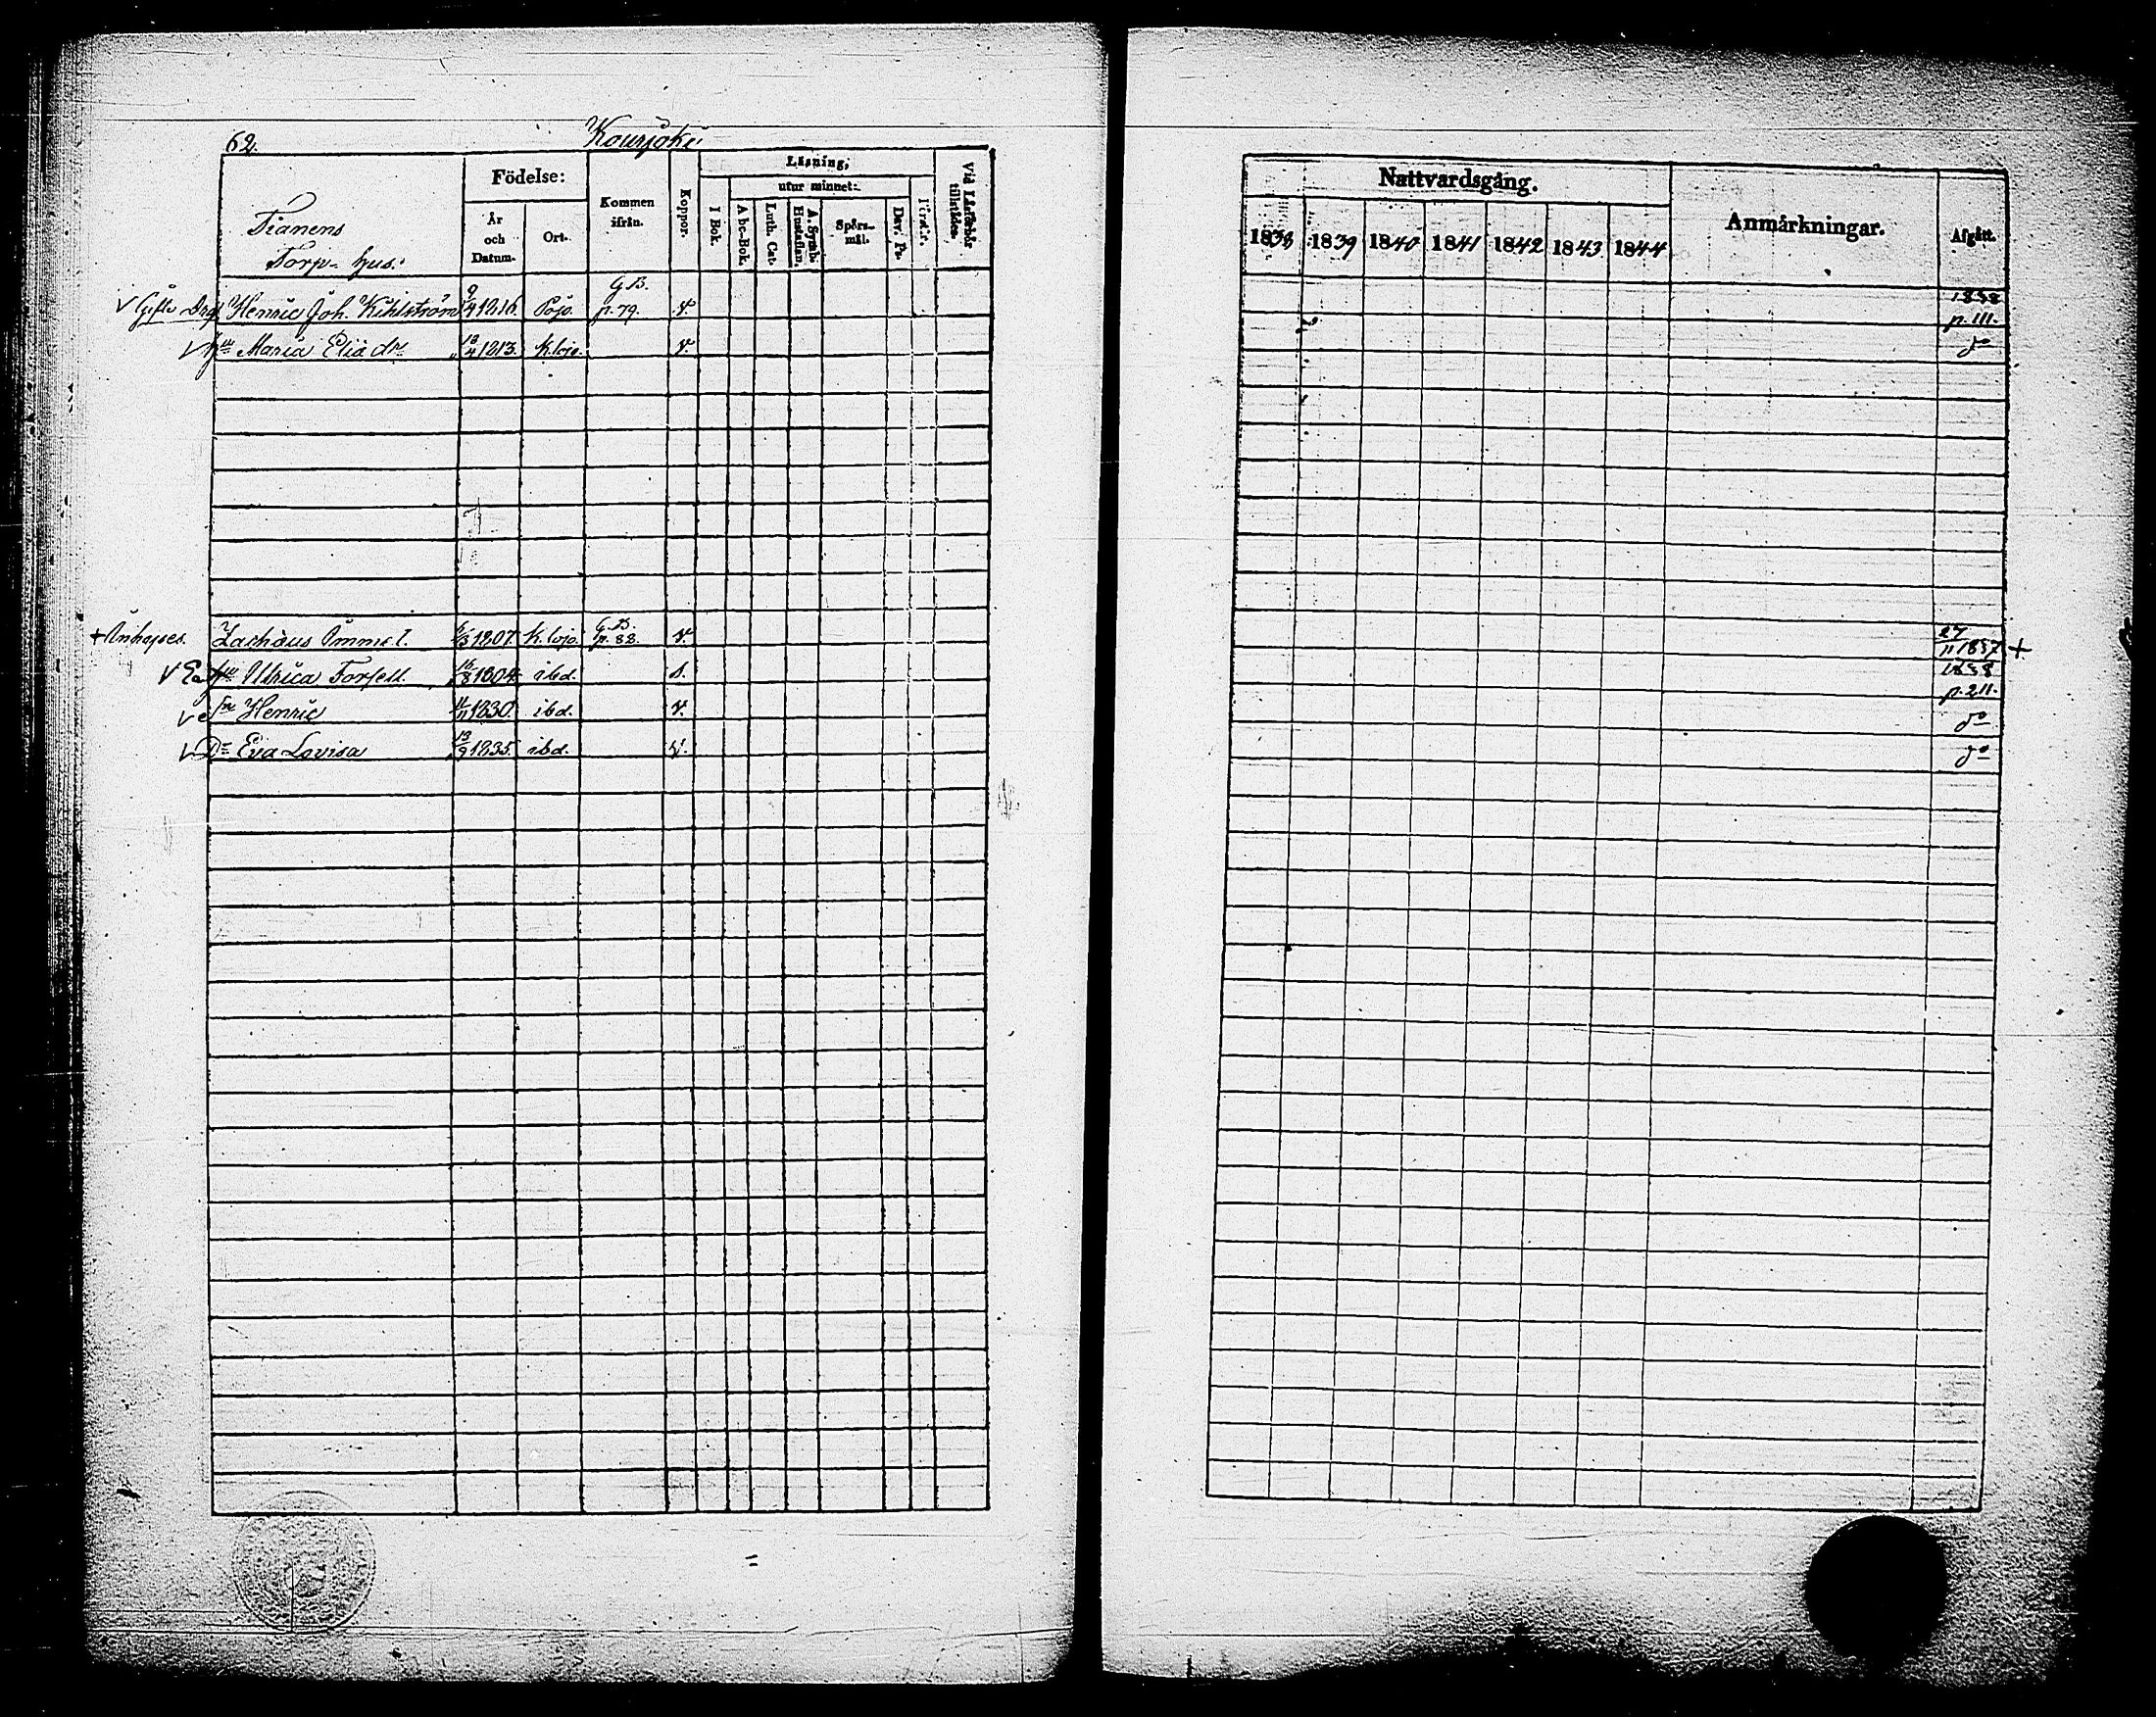 62.
Koursoki
Tianens
Torp- hus.
Födelse:
År
och
Datum.
Ort.
Kommen
ifrån.
Koppor.
Läsning,
utur minnet:
I Bok.
A bc-Bok.
Luth. Cat.
A. Symb.
Hustaflan.
Spörs-
mål.
Dav. Ps.
Först:r.
Vid Läsförhör
tillstädes.
G B.
√ Gifte Drg Henric Joh. Kihlström 9/4 1816. Pojo. p. 79. v.
√ hu Maria Elia dr 13/4 1813. K.lojo. v.
+ Inhyses. Zachäus Ömmel. 6/3 1807. K.lojo. G.B. p. 82. v.
√ Ea hu Ulrica Forsell 16/8 1804. ibd. s.
√ e sn Henric 11/11 1830. ibd. v.
√ Dr Eva Lovisa 13/9 1835. ibd. v.
Nattvardsgång.
1838 1839 1840 1841 1842 1843 1844
Anmärkningar.
Afgått.
1838
p. 111.
do
27/11 1837 +
1838
p. 211.
do
do